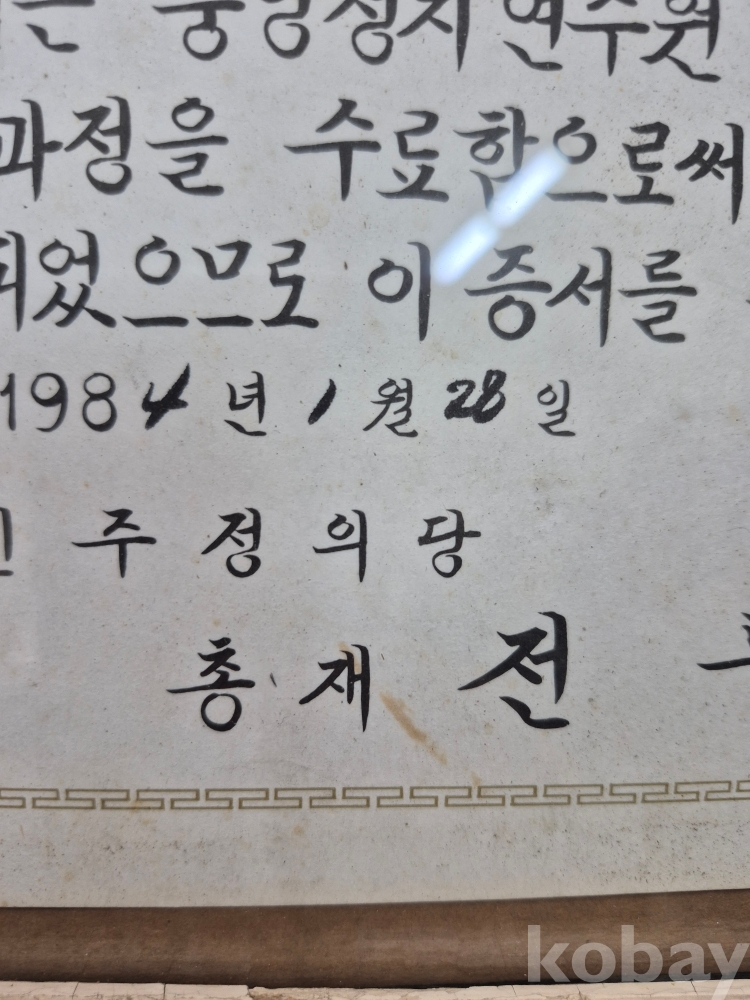 중앙정치연수원
과정을 수료함으로써
되었으므로 이 증서를
1984년 1월 28일
민주정의당
총재 전
kobay